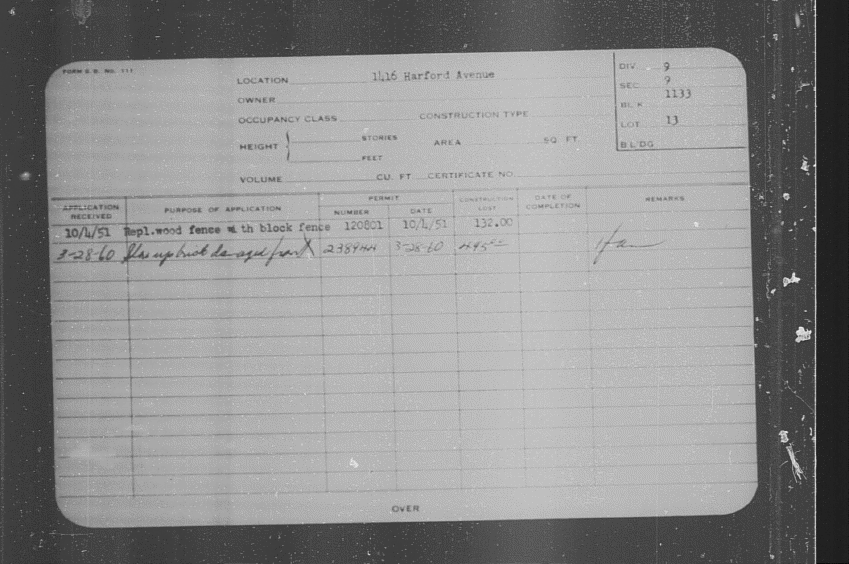 FORM S.B. NO. 111
LOCATION 1416 Harford Avenue
OWNER
OCCUPANCY CLASS CONSTRUCTION TYPE
HEIGHT STORIES AREA SQ FT
FEET
VOLUME CU. FT CERTIFICATE NO
DIV 9
SEC 9
BLK 1133
LOT 13
BLDG
APPLICATION RECEIVED PURPOSE OF APPLICATION PERMIT NUMBER DATE CONSTRUCTION COST DATE OF COMPLETION REMARKS
10/4/51 Repl.wood fence with block fence 120801 10/4/51 132.00
3-28-60 up brick damaged front 3-28-60 495
OVER